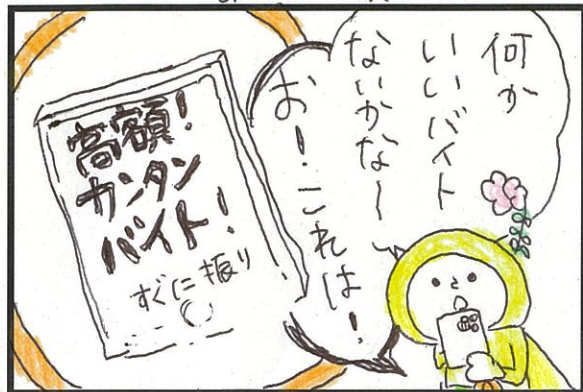 何か
いいバイト
ないかな〜
おー！これは！
高額！
カンタン
バイト！
すぐに振り